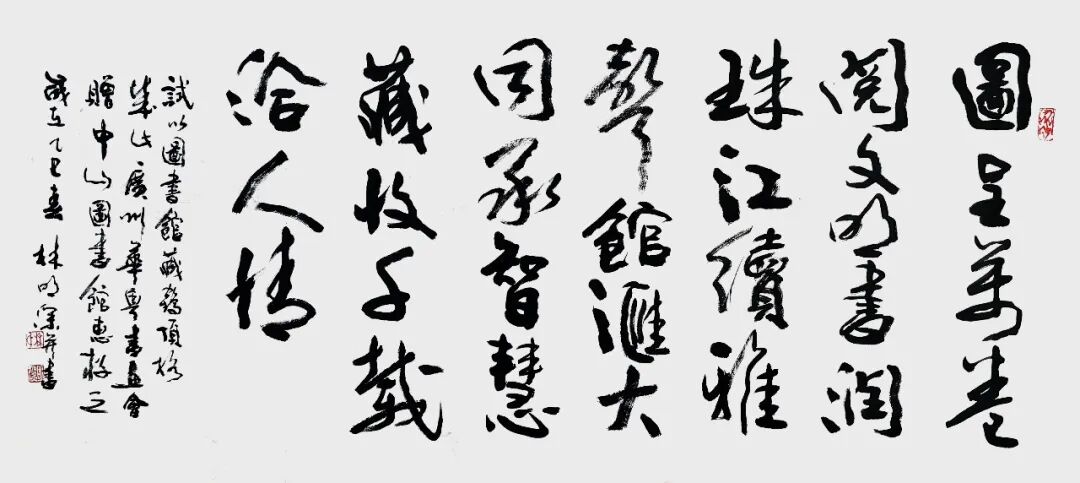 圖呈萬卷
閱文明書潤
珠江續雅
聲館滙大
同承智慧
藏收千載
洽人情
試以圖書館藏鶴頂格
成此廣州華粵書畫會
贈中山圖書館惠存之
歲在乙巳春 林明深并書